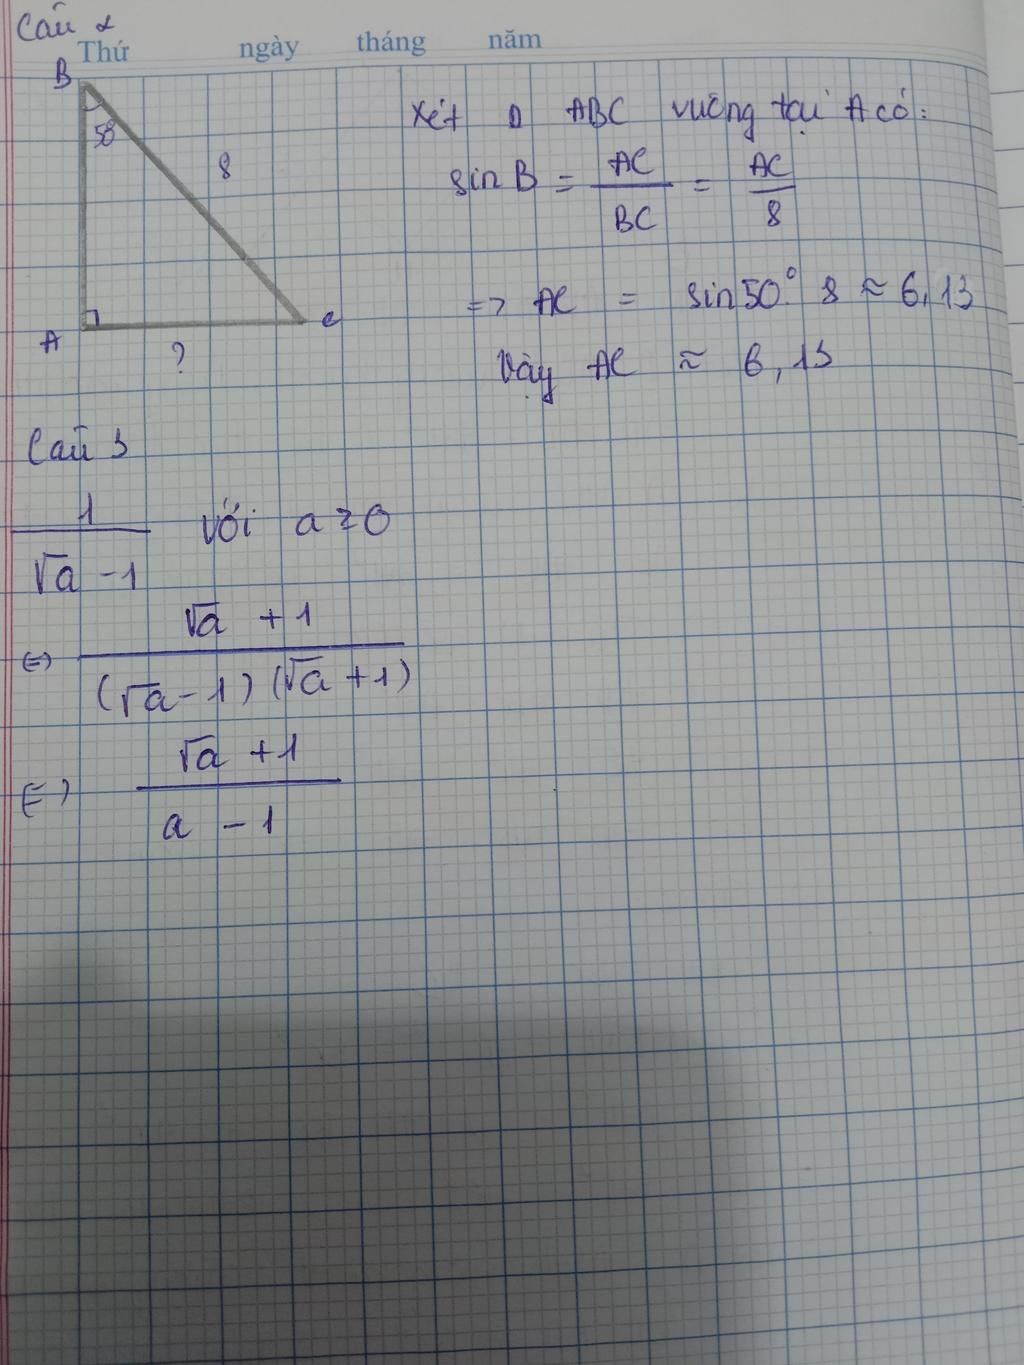 Câu 2
Thứ ngày tháng năm
B
50
8
A
C
?
Xét Δ ABC vuông tại A có:
sin B = AC/BC = AC/8
=> AC = sin 50°. 8 ≈ 6,13
Vậy AC ≈ 6,13
Câu 3
1/(√a - 1) với a ≥ 0
(=) (√a + 1)/((√a - 1)(√a + 1))
(=) (√a + 1)/(a - 1)